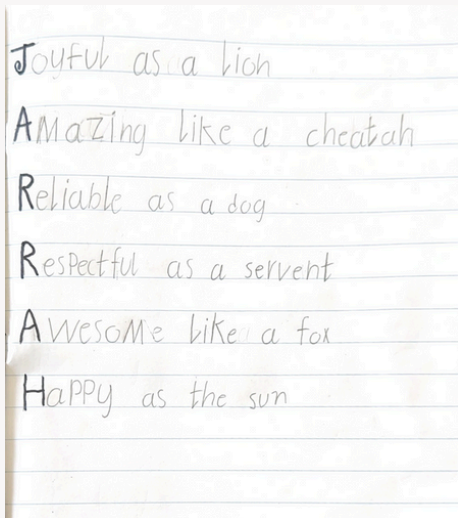 Joyful as a lion
Amazing like a cheatah
Reliable as a dog
Respectful as a servent
Awesome like a fox
Happy as the sun